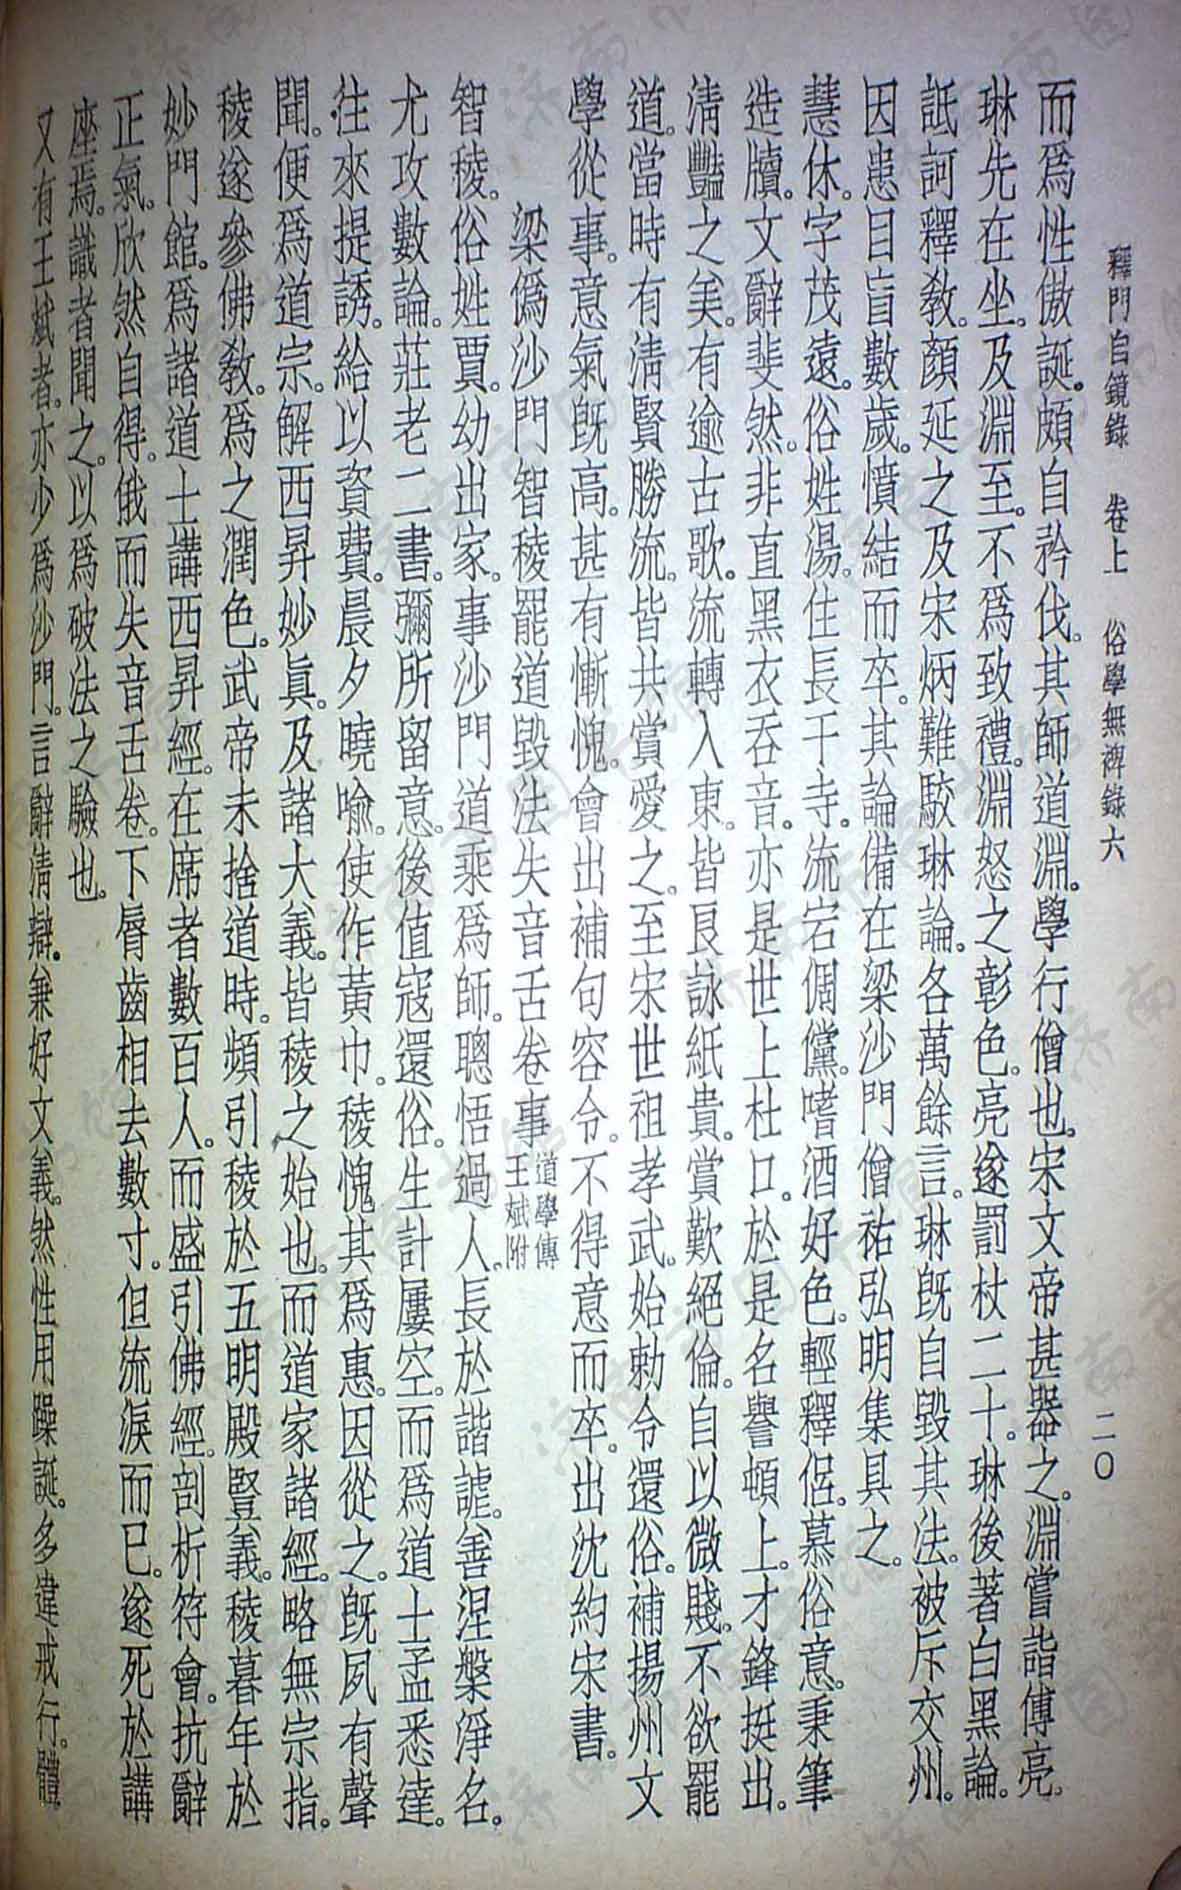 釋門自鏡錄　卷上　俗學無裨錄六　二〇
而爲性傲誕。頗自矜伐。其師道淵。學行僧也。宋文帝甚器之。淵嘗詣傅亮。
琳先在坐。及淵至。不爲致禮。淵怒之彰色。亮遂罰杖二十。琳後著白黑論。
詆訶釋教。顏延之及宋炳難駮琳論。各萬餘言。琳既自毀其法。被斥交州。
因患目盲數歲。憤結而卒。其論備在梁沙門僧祐弘明集具之。
慧休。字茂遠。俗姓湯。住長干寺。流宕倜儻。嗜酒好色。輕釋侶。慕俗意。秉筆
造牘。文辭斐然。非直黑衣吞音。亦是世上杜口。於是名譽頓上。才鋒挺出。
淸豔之美。有逾古歌。流轉入東。皆良詠紙貴。賞歎絕倫。自以微賤。不欲罷
道。當時有淸賢勝流。皆共賞愛之。至宋世祖孝武。始勅令還俗。補揚州文
學從事。意氣既高。甚有慚愧。會出補句容令。不得意而卒。出沈約宋書。
梁僞沙門智稜罷道毀法失音舌卷事道學傳王斌附
智稜。俗姓賈。幼出家。事沙門道乘爲師。聰悟過人。長於諧謔。善涅槃淨名。
尤攻數論。莊老二書。彌所留意。後值寇還俗。生計屢空。而爲道士孟悉達。
往來提誘。給以資費。晨夕曉喻。使作黃巾。稜愧其爲惠。因從之。既夙有聲
聞。便爲道宗。解西昇妙眞。及諸大義。皆稜之始也。而道家諸經。略無宗指。
稜遂參佛教。爲之潤色。武帝未捨道時。頻引稜於五明殿豎義。稜暮年於
妙門館。爲諸道士講西昇經。在席者數百人。而盛引佛經。剖析符會。抗辭
正氣。欣然自得。俄而失音舌卷。下脣齒相去數寸。但流淚而已。遂死於講
座焉。識者聞之。以爲破法之驗也。
又有王斌者。亦少爲沙門。言辭淸辯。兼好文義。然性用躁誕。多違戒行。體